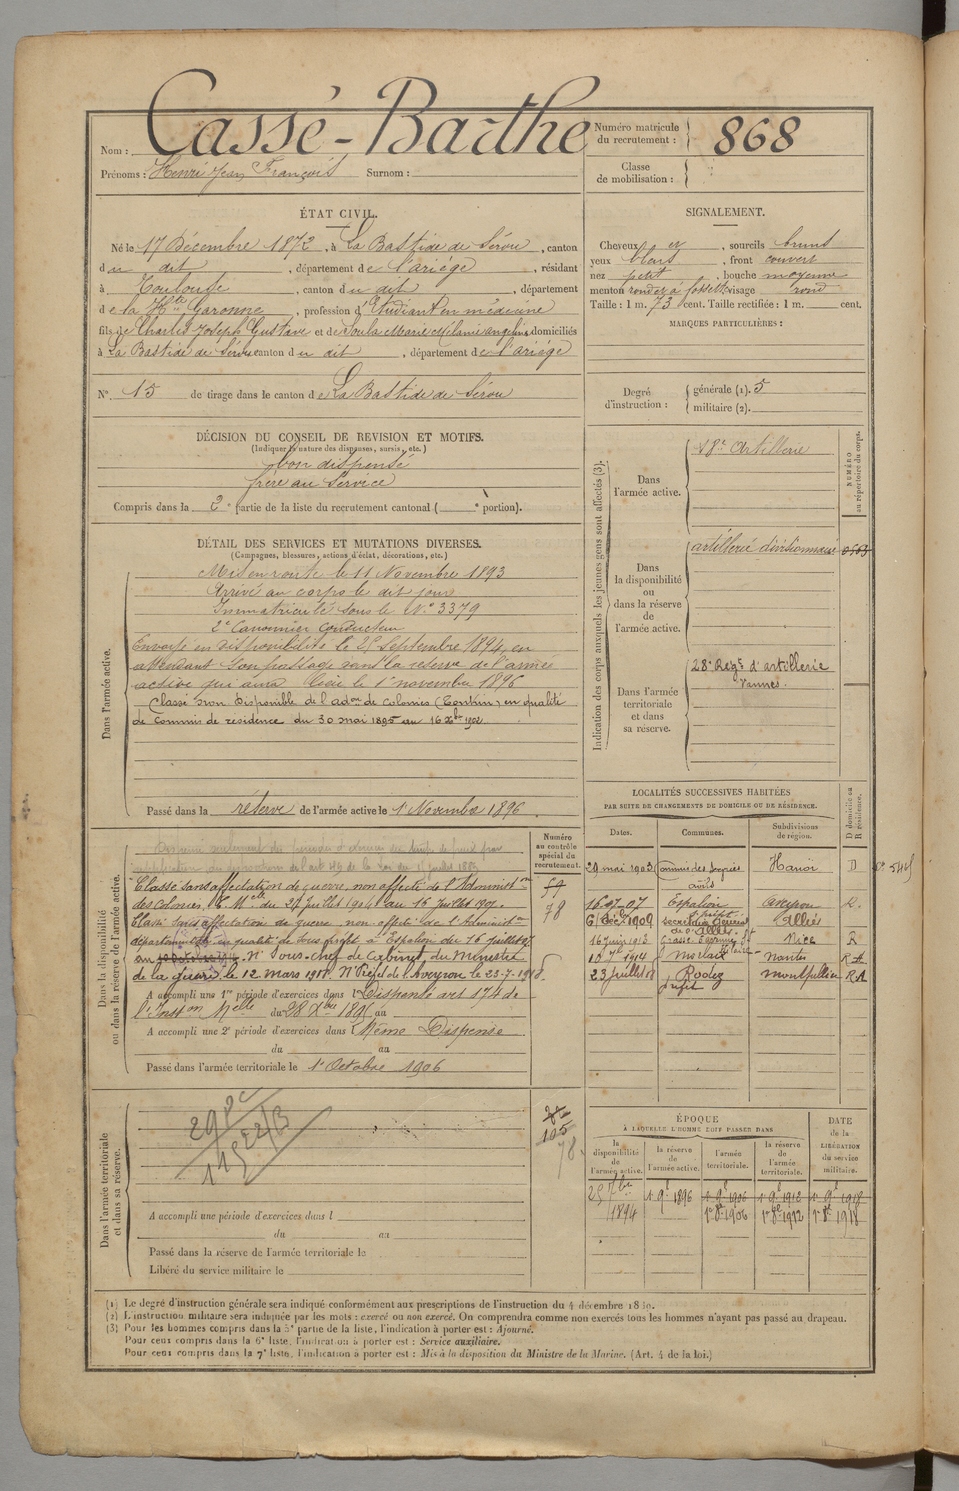 Nom : Cassé-Barthe
Prénoms : Henri Jean François Surnom :
Numéro matricule du recrutement : 868
Classe de mobilisation :
ÉTAT CIVIL.
Né le 17 Décembre 1872, à La Bastide de Sérou, canton
du dit, département de l'ariége, résidant
à Toulouse, canton du dit, département
de la Hte Garonne, profession d'Etudiant en médecine
fils de Charles Joseph Gustave et de Soula Marie Mélanie Angelina domiciliés
à La Bastide de Sérou canton du dit, département de l'ariége
N° 15 de tirage dans le canton de La Bastide de Sérou
SIGNALEMENT.
Cheveux et, sourcils bruns
yeux bleus, front couvert
nez petit, bouche moyenne
menton rond et à fossette visage rond
Taille : 1 m. 73 cent. Taille rectifiée : 1 m. cent.
MARQUES PARTICULIÈRES :
Degré d'instruction : générale (1). 5
militaire (2).
DÉCISION DU CONSEIL DE REVISION ET MOTIFS.
(Indiquer la nature des dispenses, sursis, etc.)
bon dispensé
frère au Service
Compris dans la 2e partie de la liste du recrutement cantonal ( e portion).
DÉTAIL DES SERVICES ET MUTATIONS DIVERSES.
(Campagnes, blessures, actions d'éclat, décorations, etc.)
Dans l'armée active.
Mis en route le 11 Novembre 1893
Arrivé au corps le dit jour
Immatriculé sous le N° 3379
2e Canonnier Conducteur
Envoyé en disponibilité le 25 Septembre 1894, en
attendant son passage dans la réserve de l'armée
active qui aura lieu le 1er novembre 1896
Classé non disponible de l'adon de colonies (Tonkin) en qualité
de Commis de résidence du 30 mai 1895 au 16 Xbre 1902.
Passé dans la réserve de l'armée active le 1er Novembre 1896
Indication des corps auxquels les jeunes gens sont affectés (3).
NUMÉRO au répertoire du corps.
Dans l'armée active.
18e Artillerie
Dans la disponibilité ou dans la réserve de l'armée active.
artillerie divisionnaire
Dans l'armée territoriale et dans sa réserve.
28e Regt d'artillerie
Vannes.
LOCALITÉS SUCCESSIVES HABITÉES
PAR SUITE DE CHANGEMENTS DE DOMICILE OU DE RÉSIDENCE.
Dates. Communes. Subdivisions de région. D domicile ou R résidence.
29 mai 1903 Commis des Services civils Hanoï D
16-07-07 Espalion Aveyron R.
6 Déc. 1909 Secrétaire Général de l'Allier Allier
16 Juin 1913 Grasse Nice R
1914 Morlaix Nantes
23 Juillet 18 Rodez préfet Montpellier R.A
Dans la disponibilité ou dans la réserve de l'armée active.
Numéro au contrôle spécial du recrutement.
59
78
Classé sans affectation de guerre, non affecté de l'Administon
des colonies, du 24 Juillet 1904 au 16 Juillet 1907.
Classé sans affectation de guerre non affecté de l'Administon
départementale en qualité de Sous préfet à Espalion du 16 Juillet 07
au Sous-chef de Cabinet du Ministre
de la guerre le 12 mars 1918. Né Préfet de l'Aveyron le 23-7-1918
A accompli une 1re période d'exercices dans l Dispensé art 174 de
l'Inston Melle du 28 Xbre 1895 au
A accompli une 2e période d'exercices dans l Même Dispense
du au
Passé dans l'armée territoriale le 1er Octobre 1906
Dans l'armée territoriale et dans sa réserve.
105
78
A accompli une période d'exercices dans l
du au
Passé dans la réserve de l'armée territoriale le
Libéré du service militaire le
ÉPOQUE
À LAQUELLE L'HOMME DOIT PASSER DANS
DATE de la LIBÉRATION du service militaire.
la disponibilité de l'armée active. la réserve de l'armée active. l'armée territoriale. la réserve de l'armée territoriale.
25 7bre 1894 1er 9e 1896 1er 9e 1906 1er 9e 1912 1er 9e 1918
1er 8e 1906 1er 8e 1912 1er 8e 1918
(1) Le degré d'instruction générale sera indiqué conformément aux prescriptions de l'instruction du 4 décembre 1889.
(2) L'instruction militaire sera indiquée par les mots : exercé ou non exercé. On comprendra comme non exercés tous les hommes n'ayant pas passé au drapeau.
(3) Pour les hommes compris dans la 5e partie de la liste, l'indication à porter est : Ajourné.
Pour ceux compris dans la 6e liste, l'indication à porter est : Service auxiliaire.
Pour ceux compris dans la 7e liste, l'indication à porter est : Mis à la disposition du Ministre de la Marine. (Art. 4 de la loi.)